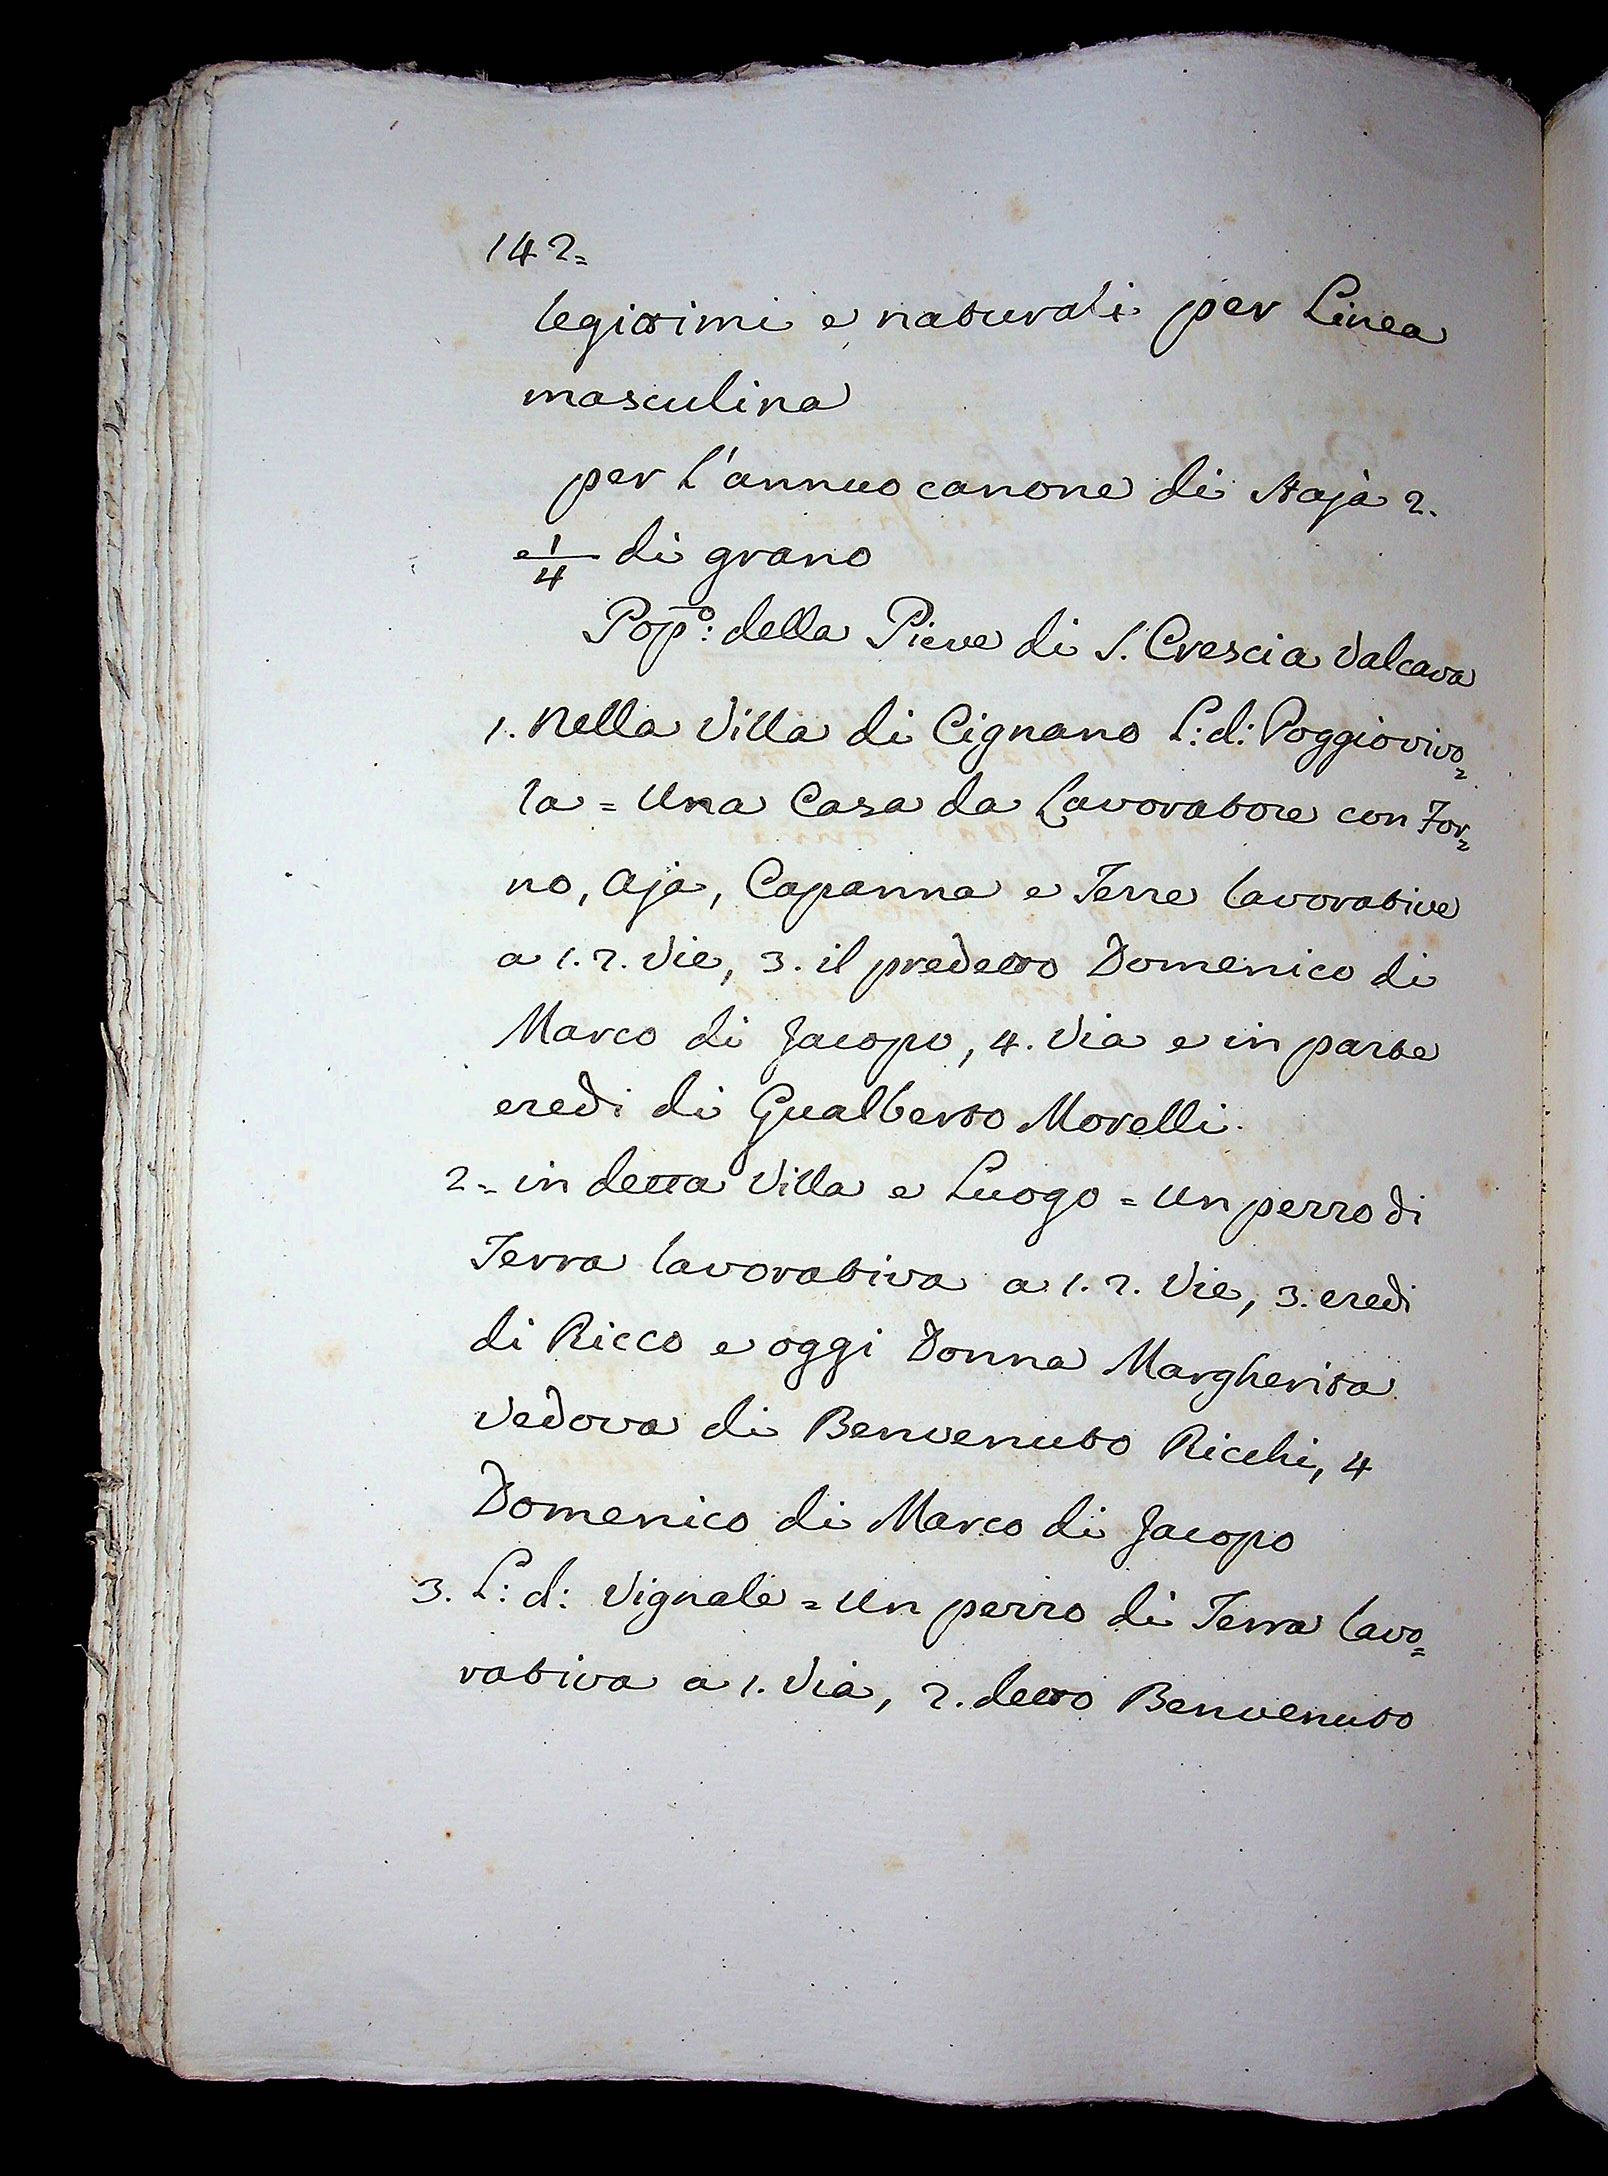 142=
legittimi e naturali per Linea
masculina
per l'annuo canone di Staja 2.
e 1/4 di grano
Pop:o della Pieve di S. Crescia Valcava
1. Nella Villa di Cignano L: d: Poggiovivo=
la = Una Casa da Lavoratore con For=
no, Aja, Capanna e Terre lavorative
a 1. 2. Vie, 3. il predetto Domenico di
Marco di Jacopo, 4. Via e in parte
eredi di Gualberto Morelli.
2= in detta Villa e Luogo = Un pezzo di
Terra lavorativa a 1. 2. Vie, 3. eredi
di Ricco e oggi Donna Margherita
Vedova di Benvenuto Ricchi, 4
Domenico di Marco di Jacopo
3. L: d: Vignale = Un pezzo di Terra lavo=
rativa a 1. Via, 2. detto Benvenuto